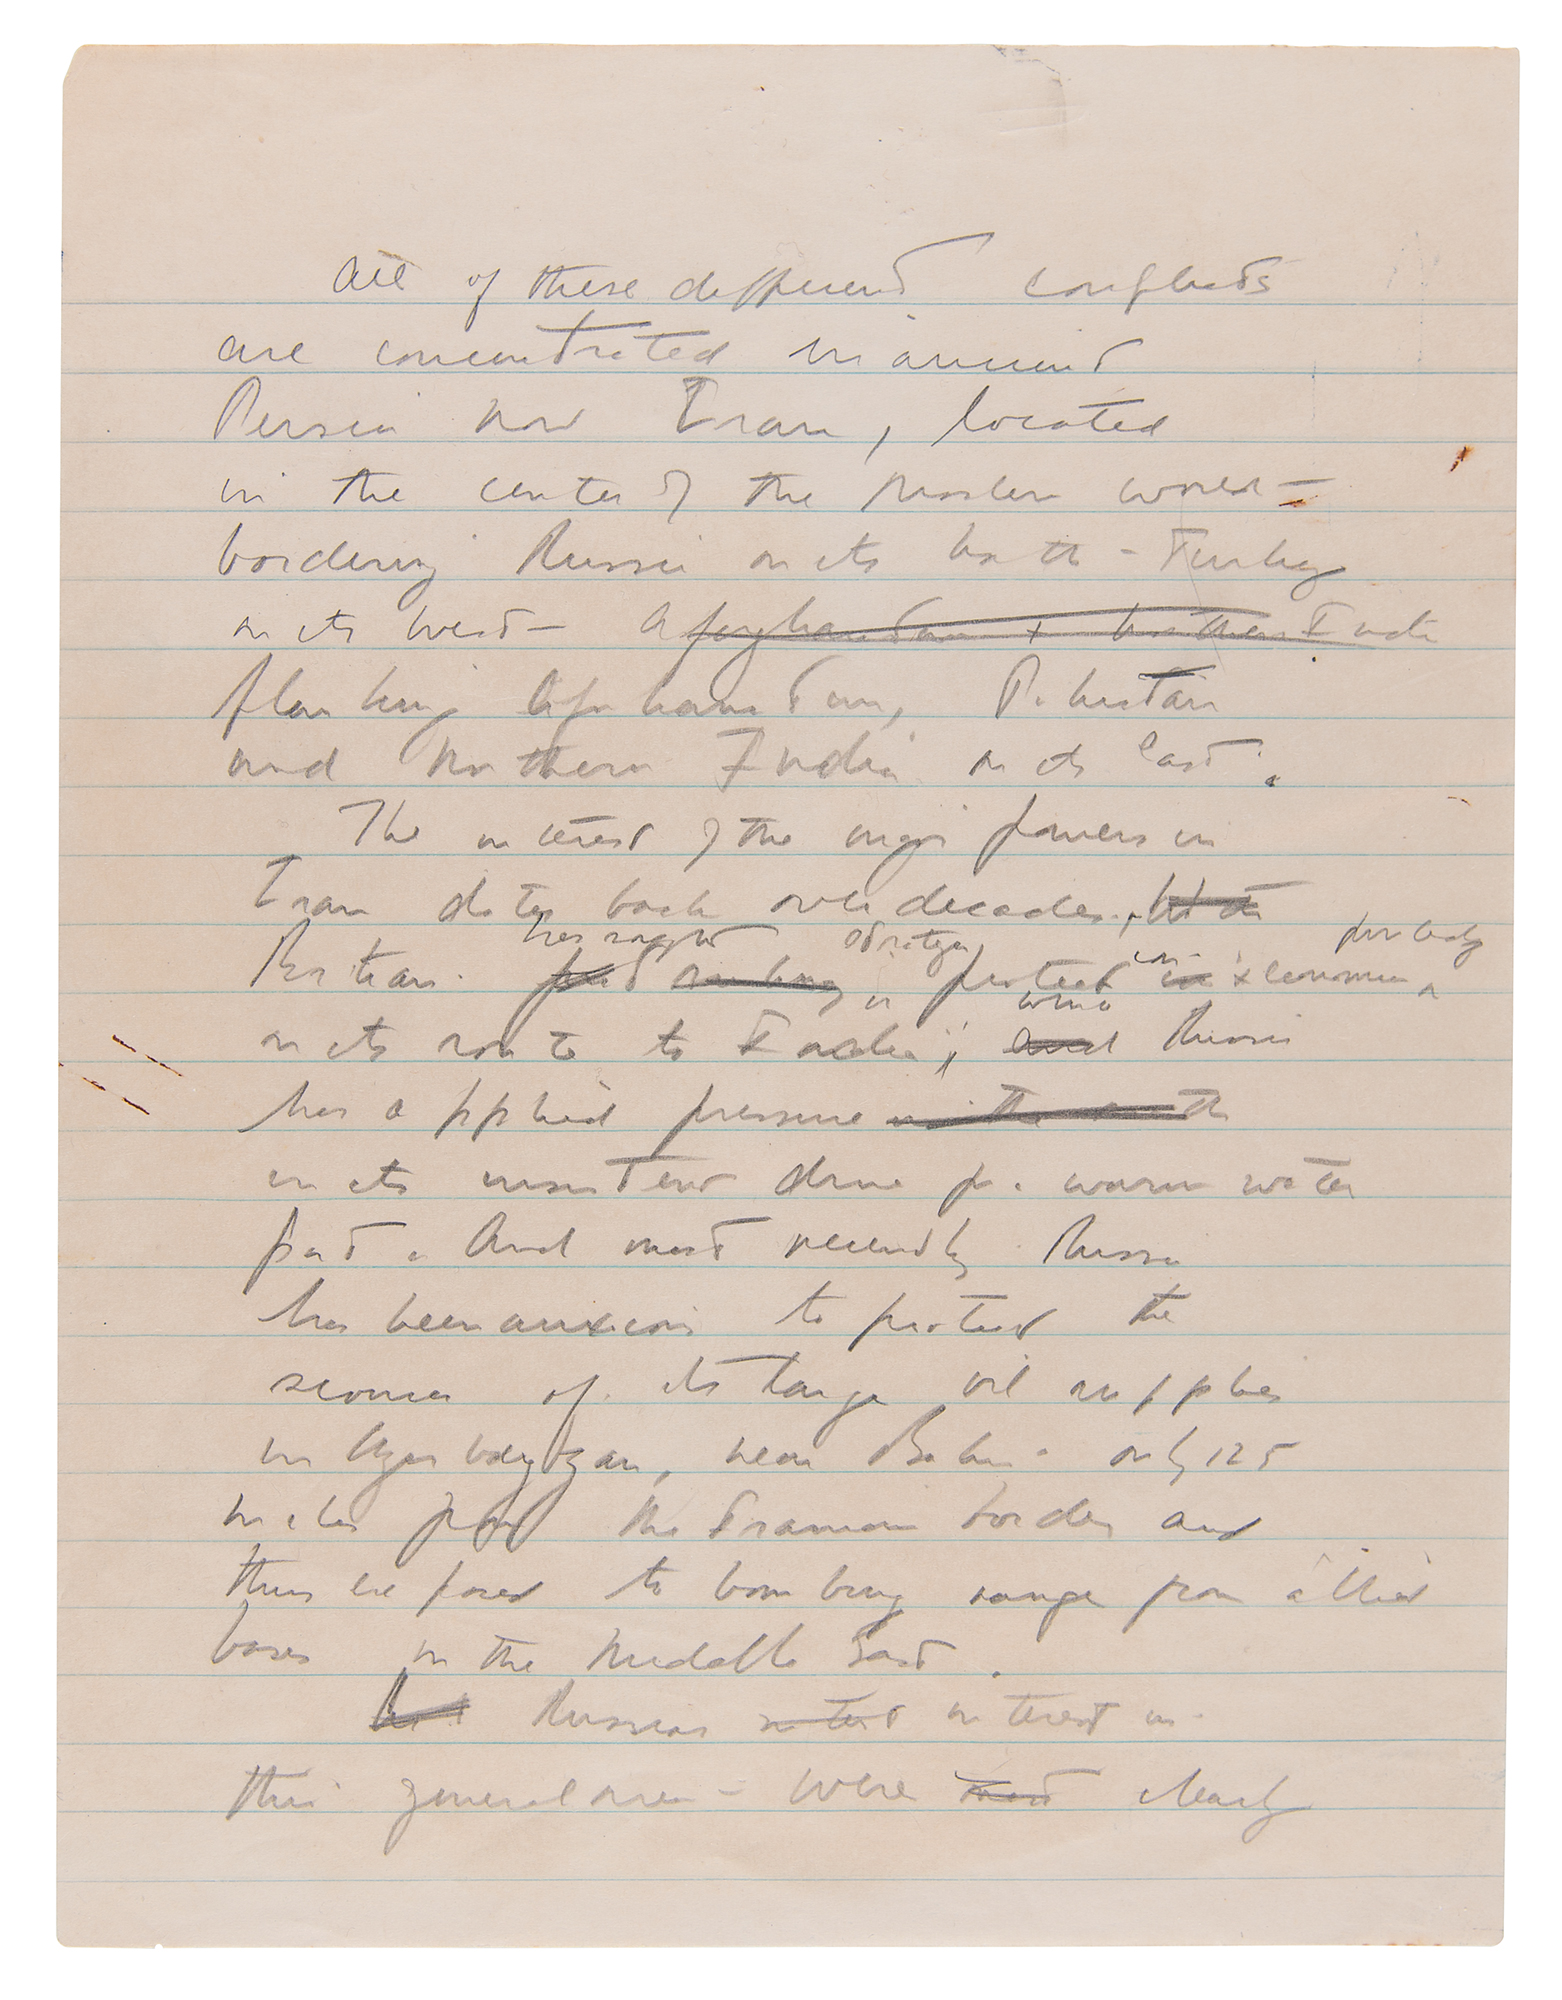 All of these different conflicts
are concentrated in ancient
Persia now Iran, located
in the center of the Moslem world –
bordering Russia on its north – Turkey
on its west – Afghanistan + northern India
flanking Afghanistan, Pakistan
and northern India on its east.
The interest of the major powers in
Iran dates back over decades,
has sought strategic particularly
Britain protect economic
on its route to India; while and Russia
has applied pressure in the north
in its insistent drive for a warm water
port. And most recently Russia
has been anxious to protect the
source of its large oil supplies
in Azerbadyzan, near Baku – only 125
miles from the Iranian border and
thus exposed to bombing range from allied
bases in the Middle East.
But Russias interest in
this general area – were clearly